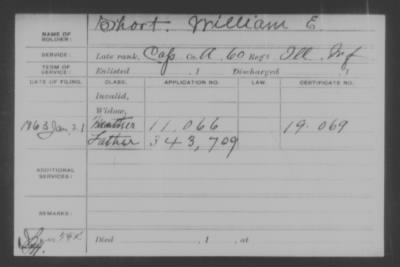 NAME OF SOLDIER: Short, William E.
SERVICE: Late rank, Cap Co. A, 60 Reg't Ill. Inf
TERM OF SERVICE: Enlisted , 1 Discharged , 1
DATE OF FILING. CLASS. APPLICATION NO. LAW. CERTIFICATE NO.
Invalid,
Widow,
1863 Jan 21 Mother 11.066 19.069
Father 343,709
ADDITIONAL SERVICES:
REMARKS:
Died , 1 , at